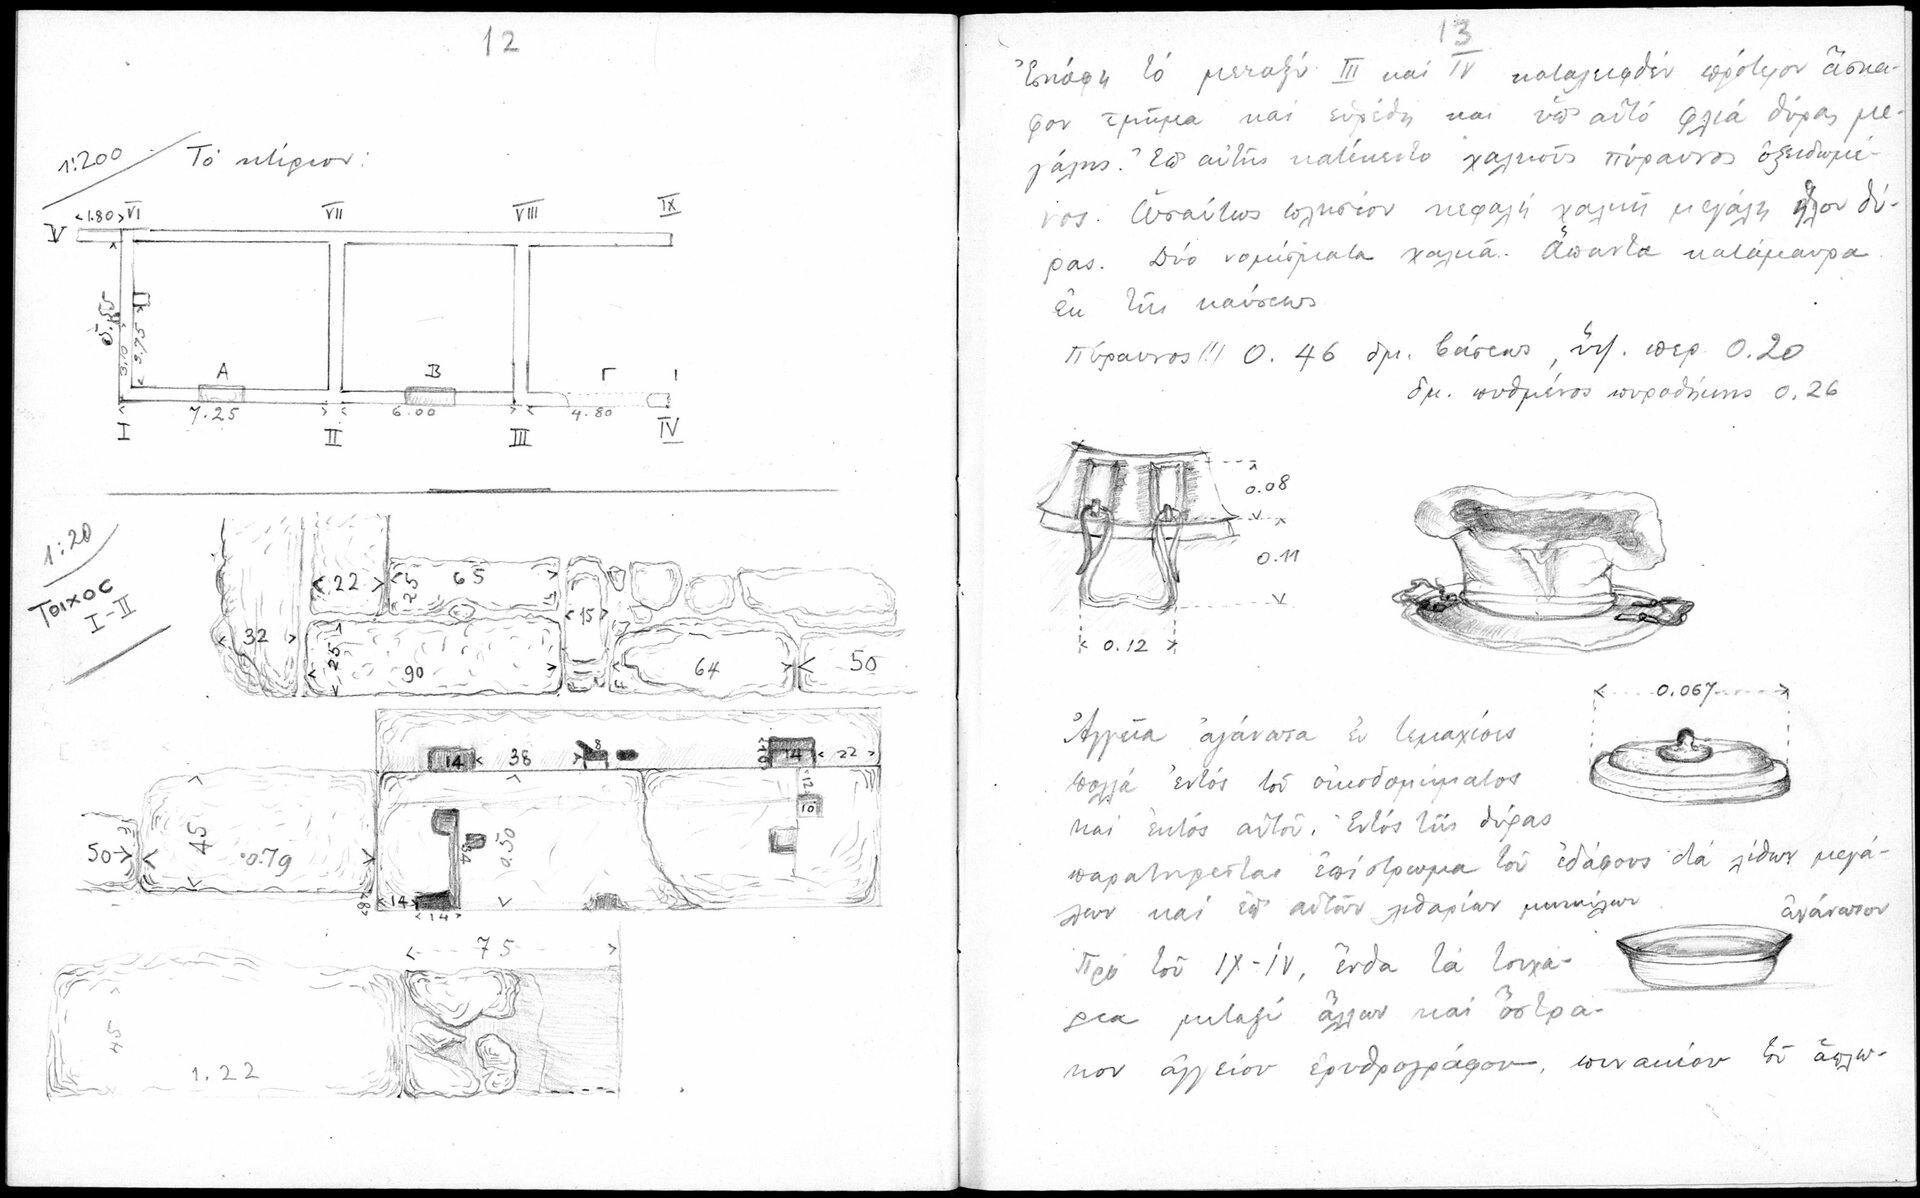 12
1:200
Τὸ κτίριον:
<1.80> VI VII VIII IX
V
0.55
3.10
3.75
A B Γ
7.25 6.00 4.80
I II III IV
1:20
Τοιχος
I-II
<22> 25 65 <15>
<32> 25 90 64 50
14 38 8 10 14 22
12
10
50 45 0.79 34 0.50
8 14
14
75
45
1.22
13
Ἐσκάφη τὸ μεταξὺ III καὶ IV καταλειφθὲν πρότερον ἄσκα-
φον τμῆμα καὶ εὑρέθη καὶ ὑπ' αὐτὸ φλιὰ θύρας με-
γάλης. Ἐπ' αὐτῆς κατέκειτο χαλκοῦς πύραυνος ὀξειδωμέ-
νος. Ὡσαύτως πλησίον κεφαλὴ χαλκῆ μεγάλη ἥλου θύ-
ρας. Δύο νομίσματα χαλκᾶ. Ἅπαντα κατάμαυρα
ἐκ τῆς καύσεως
Πύραυνος(!!) 0.46 δμ. βάσεως, ὕψ. περ 0.20
δμ. πυθμένος πυροθήκης 0.26
0.08
0.11
0.12
0.067
Ἀγγεῖα ἀγάνωτα ἐν τεμαχίοις
πολλὰ ἐντὸς τοῦ οἰκοδομήματος
καὶ ἐκτὸς αὐτοῦ. Ἐντὸς τῆς θύρας
παρατηρεῖται ἐπίστρωμα τοῦ ἐδάφους διὰ λίθων μεγά-
λων καὶ ἐπ' αὐτῶν λιθαρίων
ἀγάνωτον
Πρὸ τοῦ IX-IV, ἔνθα τὰ τοιχά-
ρια μεταξὺ ἄλλων καὶ ὄστρα-
κον ἀγγείου ἐρυθρογράφου, πινακίου τοῦ ἁπλω-